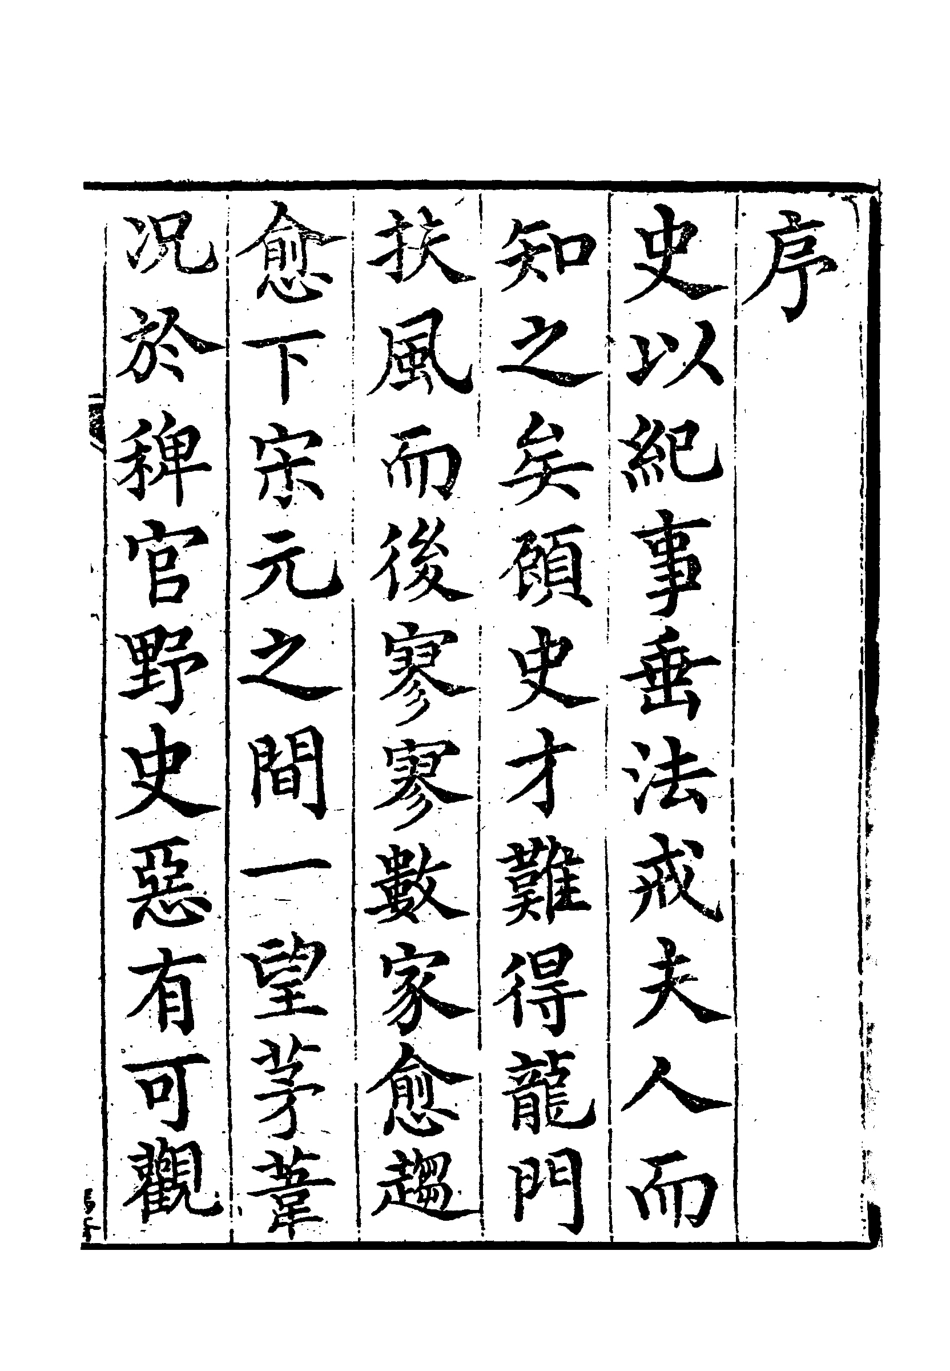 序
史以紀事垂法戒夫人而
知之矣顧史才難得龍門
扶風而後寥寥數家愈趨
愈下宋元之間一望茅葦
况於稗官野史惡有可觀